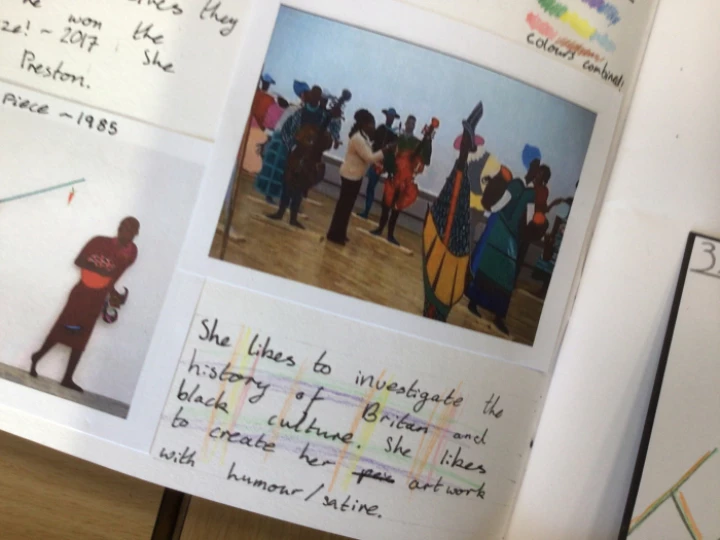 they
won the
ze! ~ 2017 She
Preston.
Piece ~ 1985
colours combined
She likes to investigate the
history of Britan and
black culture. She likes
to create her artwork
with humour/satire.
3